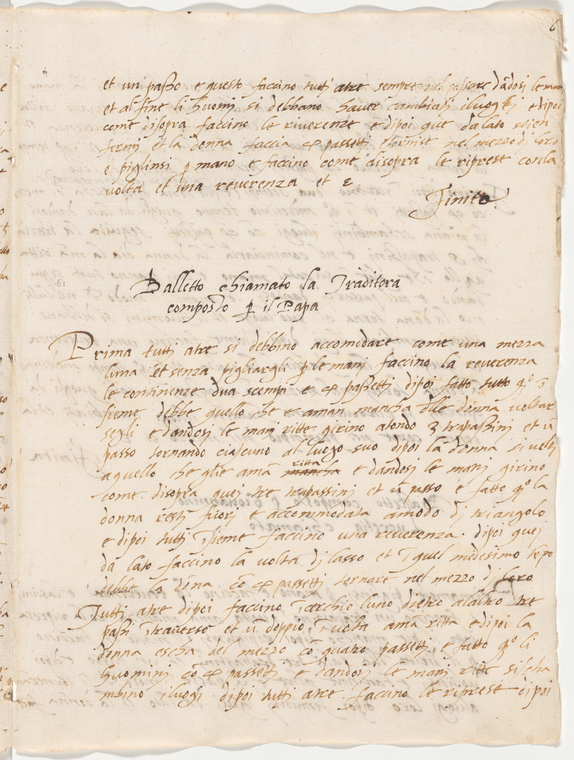 et un passo e questo faccino tutti atre sempre nel passare dãdosi le man
et al fine li huomj si debbano haver cambiati i luoghi e dipoi
come disopra faccino le riverenze e dipoi que da lato
fermj et la donna faccia 4 passetti e tornisi nel mezzo di loro
e piglinsi p mano e faccino come disopra le riprese con la
volta et una reverenza et c
Finito
Balletto chiamato la Traditora
composto p il Papa
Prima tutti atre si debbino accomodare come una mezza
luna et senza pigliargli p le manj faccino la reverenza
le continenze dua scempi e 4 passetti dipoi fatto tutto qº
sieme debbe quello che è a man mancha alle donna voltar
segli e dandosi le man ritte girino atondo 3 trapassini et ũ
passo tornando ciascuno al luogo suo dipoi la donna si volti
a quello che gliè a mã ritta e dandosi le manj girino
come disopra quei tre trapassini et ũ passo e fatto qº la
donna resti fuorj et accommodata amodo dj triangolo
e dipoi tutti Ĩsieme faccino una reverenza dipoi quei
da lato faccino la volta dj lasso et Ĩ quel midesimo tẽpo
debbe la dõna cõ 4 passetti tornare nel mezzo dj loro
Tutti atre dipoi faccino Ĩ cerchio luno dietro alaltro tre
passi Ĩ traverso et ũ doppio Ĩ volta a mã ritta e dipoi la
donna escha del mezzo cõ quatro passetti e fatto qº li
huominj cõ 4 passetti e dandosi le manj ritte si scha
mbino e luogi dipoi tutti atre faccino le riprese e dipoi